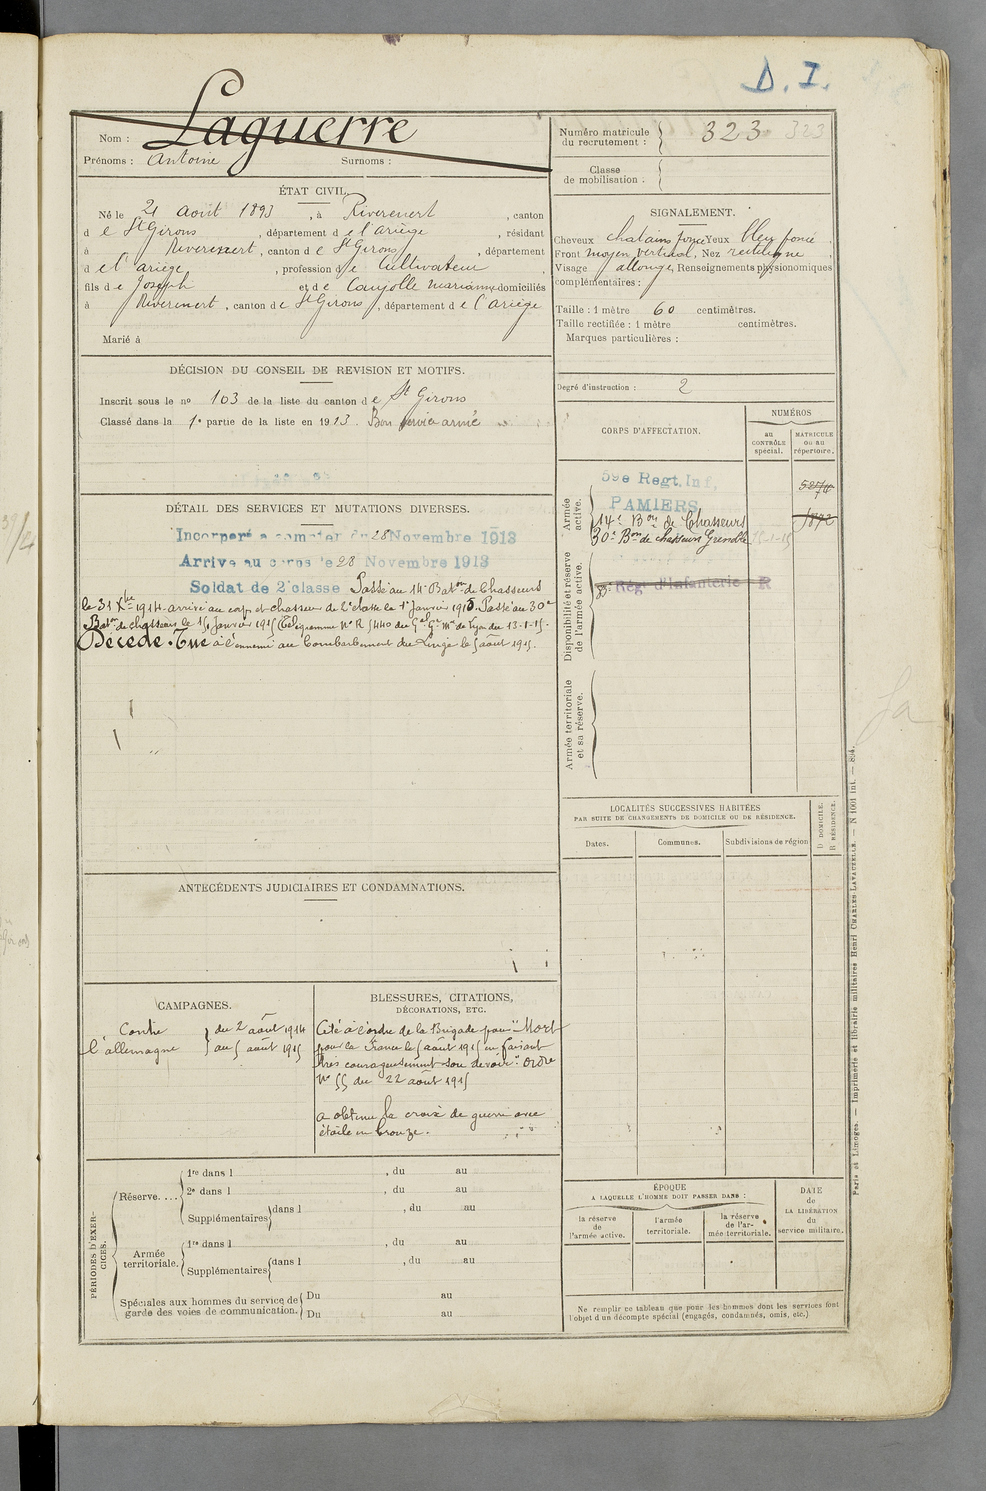 D. I.
Nom : Laguerre
Prénoms : Antoine Surnoms :
Numéro matricule du recrutement : 323 323
Classe de mobilisation :
ÉTAT CIVIL.
Né le 21 aout 1893, à Riverenert, canton
de St Girons, département de l'ariège, résidant
à Riverenert, canton de St Girons, département
de l'ariège, profession de Cultivateur
fils de Joseph et de Caujolle marianne domiciliés
à Riverenert, canton de St Girons, département de l'ariège
Marié à
SIGNALEMENT.
Cheveux chatains foncé Yeux bleu foncé,
Front moyen vertical, Nez rectiligne,
Visage allongé, Renseignements physionomiques
complémentaires :
Taille : 1 mètre 60 centimètres.
Taille rectifiée : 1 mètre centimètres.
Marques particulières :
DÉCISION DU CONSEIL DE REVISION ET MOTIFS.
Inscrit sous le no 103 de la liste du canton de St Girons
Classé dans la 1e partie de la liste en 1913. Bon service armé
Degré d'instruction : 2
DÉTAIL DES SERVICES ET MUTATIONS DIVERSES.
Incorporé a compter du 28 Novembre 1913
Arrive au corps le 28 Novembre 1913
Soldat de 2e classe Passé au 14e Baton de Chasseurs
le 31 Xbre 1914. arrivé au corps et chasseur de 2e classe le 1er Janvier 1915. Passé au 30e
Baton de chasseurs le 15 Janvier 1915 (Télégramme No R 5440 du Gal Gr Mre de Lyon du 13-1-15.
Décédé. Tué à l'ennemi au bombardement du Linge le 5 août 1915.
CORPS D'AFFECTATION.
NUMÉROS
au CONTRÔLE spécial.
MATRICULE ou au répertoire.
Armée active.
59e Regt. Inf.
PAMIERS
14e Bon de Chasseurs 1872
30e Bon de chasseurs Grenoble
Disponibilité et réserve de l'armée active.
Rég. d'Infanterie R
Armée territoriale et sa réserve.
LOCALITÉS SUCCESSIVES HABITÉES
PAR SUITE DE CHANGEMENTS DE DOMICILE OU DE RÉSIDENCE.
Dates. Communes. Subdivisions de région
D DOMICILE. R RÉSIDENCE.
ANTÉCÉDENTS JUDICIAIRES ET CONDAMNATIONS.
CAMPAGNES.
Contre l'allemagne
du 2 août 1914
au 5 août 1915
BLESSURES, CITATIONS,
DÉCORATIONS, ETC.
Cité à l'ordre de la Brigade pour "Mort
pour la France le 5 août 1915 en faisant
très courageusement son devoir". Ordre
No 55 du 22 aout 1915
a obtenu la croix de guerre avec
étoile en bronze.
PÉRIODES D'EXERCICES.
Réserve....
1re dans l , du au
2e dans l , du au
Supplémentaires dans l , du au
Armée territoriale.
1re dans l , du au
Supplémentaires dans l , du au
Spéciales aux hommes du service de garde des voies de communication.
Du au
Du au
ÉPOQUE
A LAQUELLE L'HOMME DOIT PASSER DANS :
la réserve de l'armée active.
l'armée territoriale.
la réserve de l'armée territoriale.
DATE de LA LIBÉRATION du service militaire.
Ne remplir ce tableau que pour les hommes dont les services font
l'objet d'un décompte spécial (engagés, condamnés, omis, etc.)
Paris et Limoges. — Imprimerie et librairie militaires Henri CHARLES-LAVAUZELLE. — N 1001 Int. — 894.